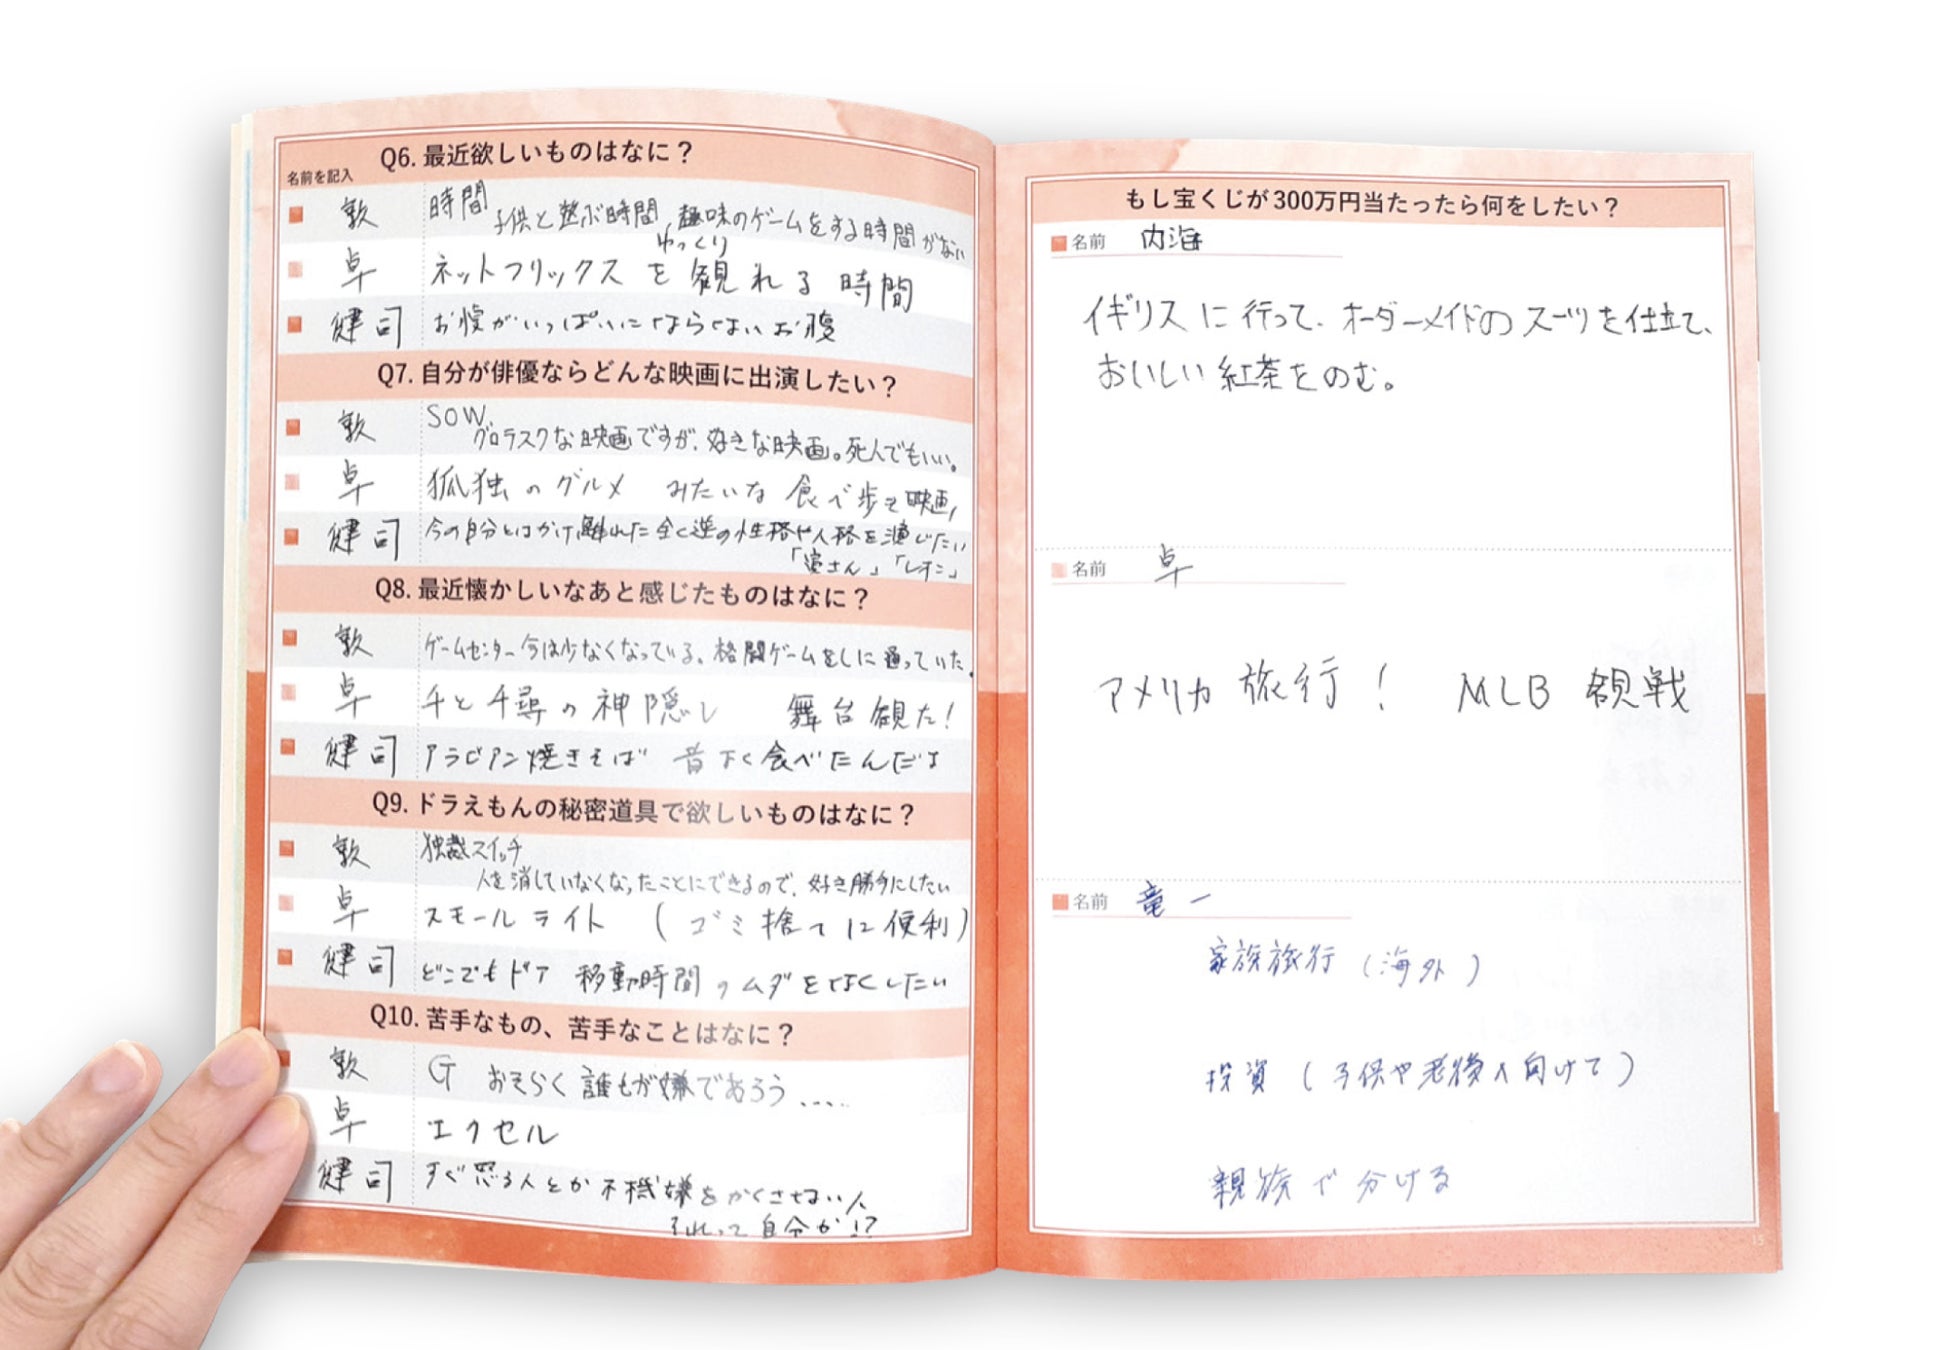 Q6. 最近欲しいものはなに？
名前を記入
敦 時間
子供と遊ぶ時間、趣味のゲームをする時間がない
卓 ネットフリックスをゆっくり観れる時間
健司 お腹がいっぱいにならないお腹
Q7. 自分が俳優ならどんな映画に出演したい？
敦 SOW
グロテスクな映画ですが、好きな映画。死人でもいい。
卓 孤独のグルメ みたいな 食べ歩き映画
健司 今の自分とはかけ離れた全く逆の性格や人格を演じたい
Q8. 最近懐かしいなあと感じたものはなに？
敦 ゲームセンター 今は少なくなっている。格闘ゲームをしに通っていた。
卓 千と千尋の神隠し 舞台観た！
健司 アラビアン焼きそば 昔よく食べたんだよ
Q9. ドラえもんの秘密道具で欲しいものはなに？
敦 独裁スイッチ
人を消していなくなったことにできるので、好き勝手にしたい
卓 スモールライト (ゴミ捨てに便利)
健司 どこでもドア 移動時間のムダをなくしたい
Q10. 苦手なもの、苦手なことはなに？
敦 G おそらく誰もが嫌であろう....
卓 エクセル
健司 すぐ怒る人とか不機嫌をかくさない人
それって自分か!?
もし宝くじが300万円当たったら何をしたい？
名前 内海
イギリスに行って、オーダーメイドのスーツを仕立て、
おいしい紅茶をのむ。
名前 卓
アメリカ旅行！ MLB 観戦
名前 竜一
家族旅行（海外）
投資（子供や老後へ向けて）
親族で分ける
15